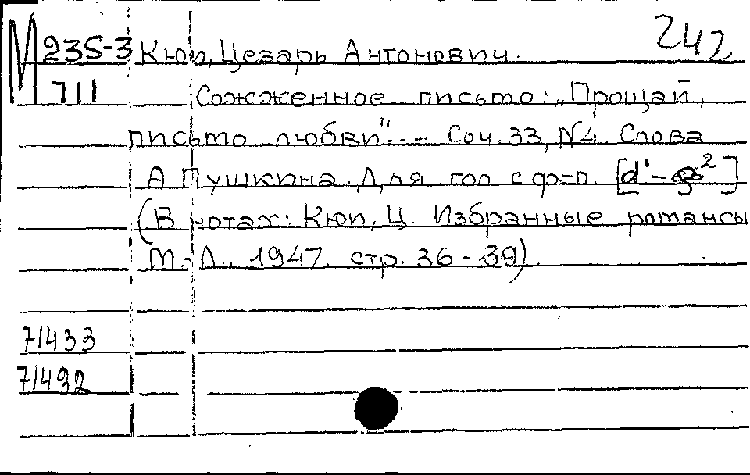 М 235-3 Кюи, Цезарь Антонович. 242
711 Сожженное письмо: „Прощай,
письмо любви". -- Соч. 33, №4. Слова
А Пушкина. Для гол с ф-п. [d'-g²]
(В нотах: Кюи, Ц. Избранные романсы
М.-Л., 1947, стр. 36-39).
71433
71492